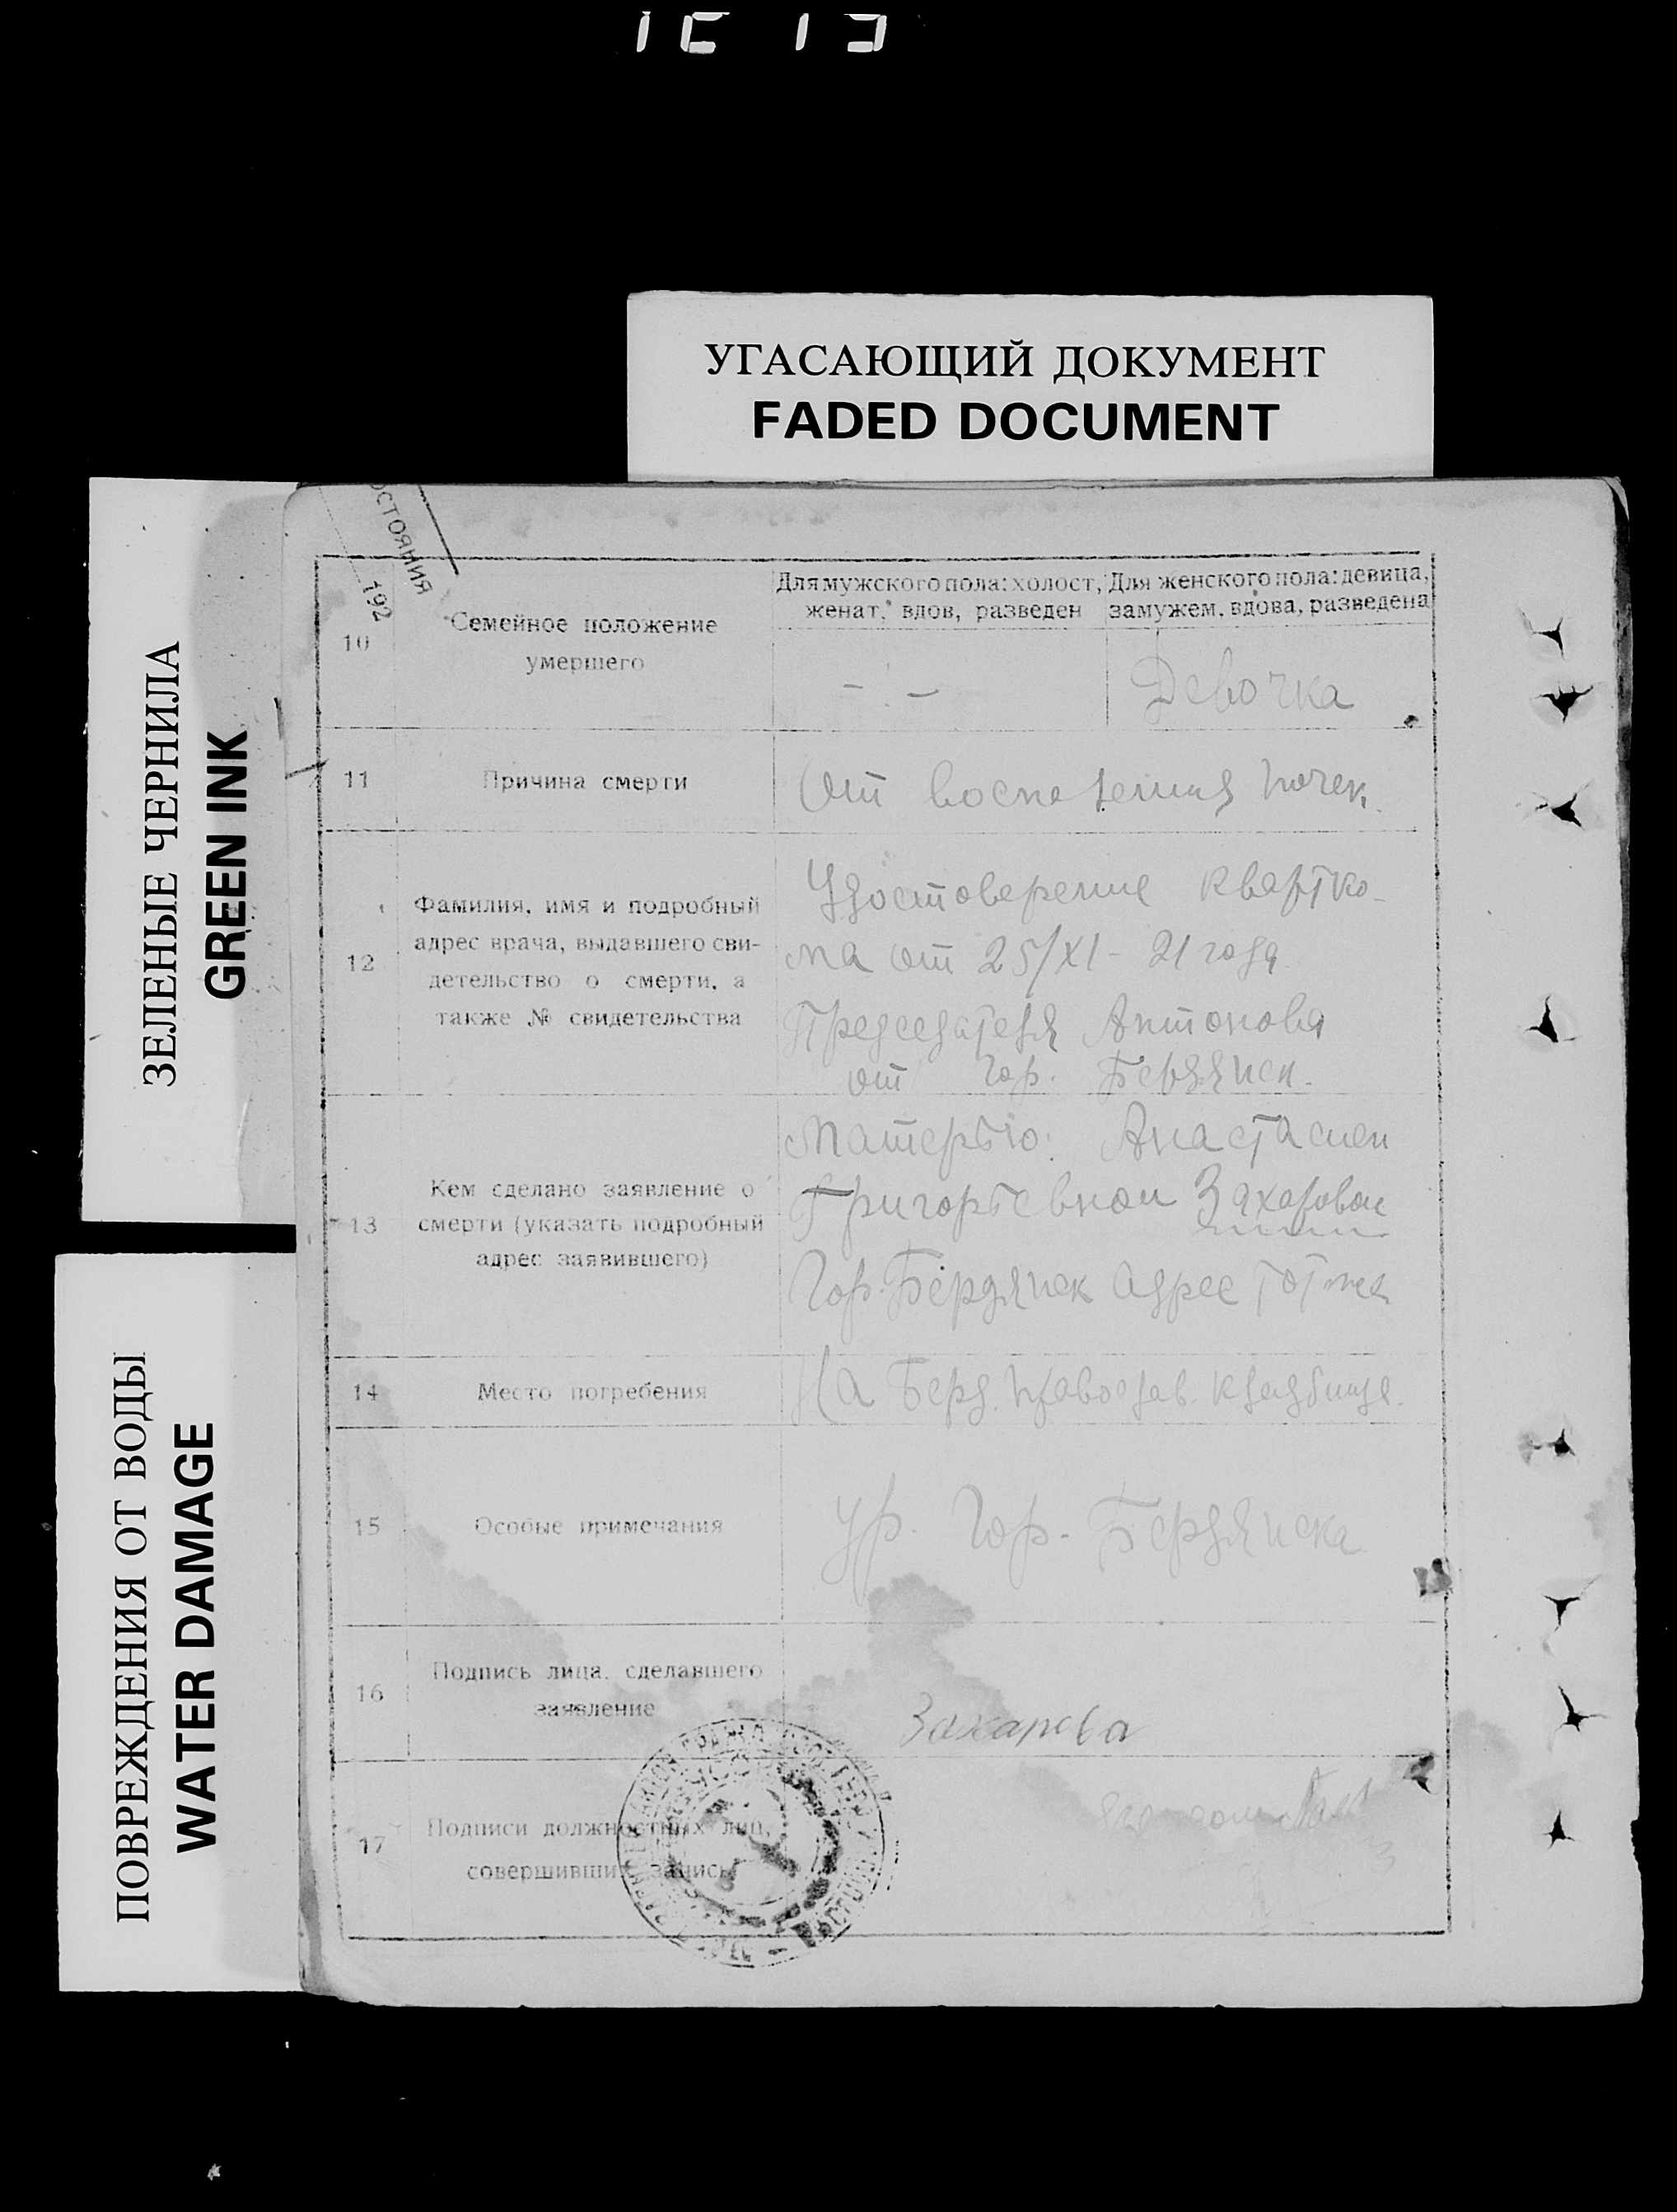 УГАСАЮЩИЙ ДОКУМЕНТ
FADED DOCUMENT
ЗЕЛЕНЫЕ ЧЕРНИЛА
GREEN INK
ПОВРЕЖДЕНИЯ ОТ ВОДЫ
WATER DAMAGE
192
10
Семейное положение
умершего
Для мужского пола: холост,
женат, вдов, разведен
Для женского пола: девица,
замужем, вдова, разведена
— —
Девочка
11
Причина смерти
От воспаления почек
12
Фамилия, имя и подробный
адрес врача, выдавшего сви-
детельство о смерти, а
также № свидетельства
Удостоверение Квартко-
ма от 25/XI - 21 года
Председателя Антонова
от Гор. Бердянск.
13
Кем сделано заявление о
смерти (указать подробный
адрес заявившего)
Матерью: Анастасиеи
Григорьевнои Захаровои
Гор. Бердянск адрес тотже
14
Место погребения
На Берд. православ. кладбище.
15
Особые примечания
ур. Гор. Бердянска
16
Подпись лица, сделавшего
заявление
Захарова
17
Подписи должностных лиц,
совершивших запись